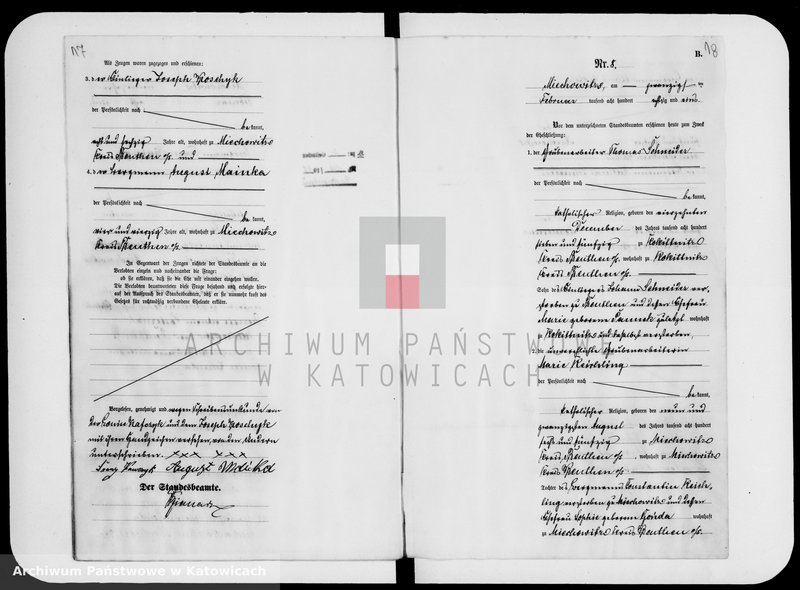 17
Als Zeugen waren zugezogen und erschienen:
3. der Einlieger Joseph Koschyk
der Persönlichkeit nach
be kannt,
acht und sechzig Jahre alt, wohnhaft zu Miechowitz
Kreis Beuthen o/s. und
4. der Bergmann August Mainka
der Persönlichkeit nach
be kannt,
vier und vierzig Jahre alt, wohnhaft zu Miechowitz
Kreis Beuthen o/s.
In Gegenwart der Zeugen richtete der Standesbeamte an die
Verlobten einzeln und nacheinander die Frage:
ob sie erklären, daß sie die Ehe mit einander eingehen wollen.
Die Verlobten beantworteten diese Frage bejahend und erfolgte hier-
auf der Ausspruch des Standesbeamten, daß er sie nunmehr kraft des
Gesetzes für rechtmäßig verbundene Eheleute erkläre.
Vorgelesen, genehmigt und wegen Schreibensunkunde von
der und dem Joseph Koschyk
mit ihren Handzeichen versehen, von den Andern
unterschrieben. xxx xxx
August
Der Standesbeamte.
18
B.
Nr. 8.
Miechowitz, am zwanzigsten
Februar tausend acht hundert achtzig und eins.
Vor dem unterzeichneten Standesbeamten erschienen heute zum Zweck
der Eheschließung:
1. der Grubenarbeiter Thomas Schneider
der Persönlichkeit nach
be kannt,
katholischer Religion, geboren den vierzehnten
December des Jahres tausend acht hundert
sieben und fünfzig zu Rokittnitz
Kreis Beuthen o/s. wohnhaft zu Rokittnitz
Kreis Beuthen o/s.
Sohn des Einliegers Johann Schneider ver-
storben zu Beuthen und dessen Ehefrau
Marie geborene zuletzt wohnhaft
zu Rokittnitz und daselbst verstorben,
2. die unverehelichte Grubenarbeiterin
Marie Reichling
der Persönlichkeit nach
be kannt,
katholischer Religion, geboren den neun und
zwanzigsten August des Jahres tausend acht hundert
sechs und fünfzig zu Miechowitz
Kreis Beuthen o/s. wohnhaft zu Miechowitz
Kreis Beuthen o/s.
Tochter des Bergmanns Constantin Reich-
ling verstorben zu Miechowitz und dessen
Ehefrau Sophie geborene wohnhaft
zu Miechowitz Kreis Beuthen o/s.
ARCHIWUM PAŃSTWOWE
W KATOWICACH
Archiwum Państwowe w Katowicach